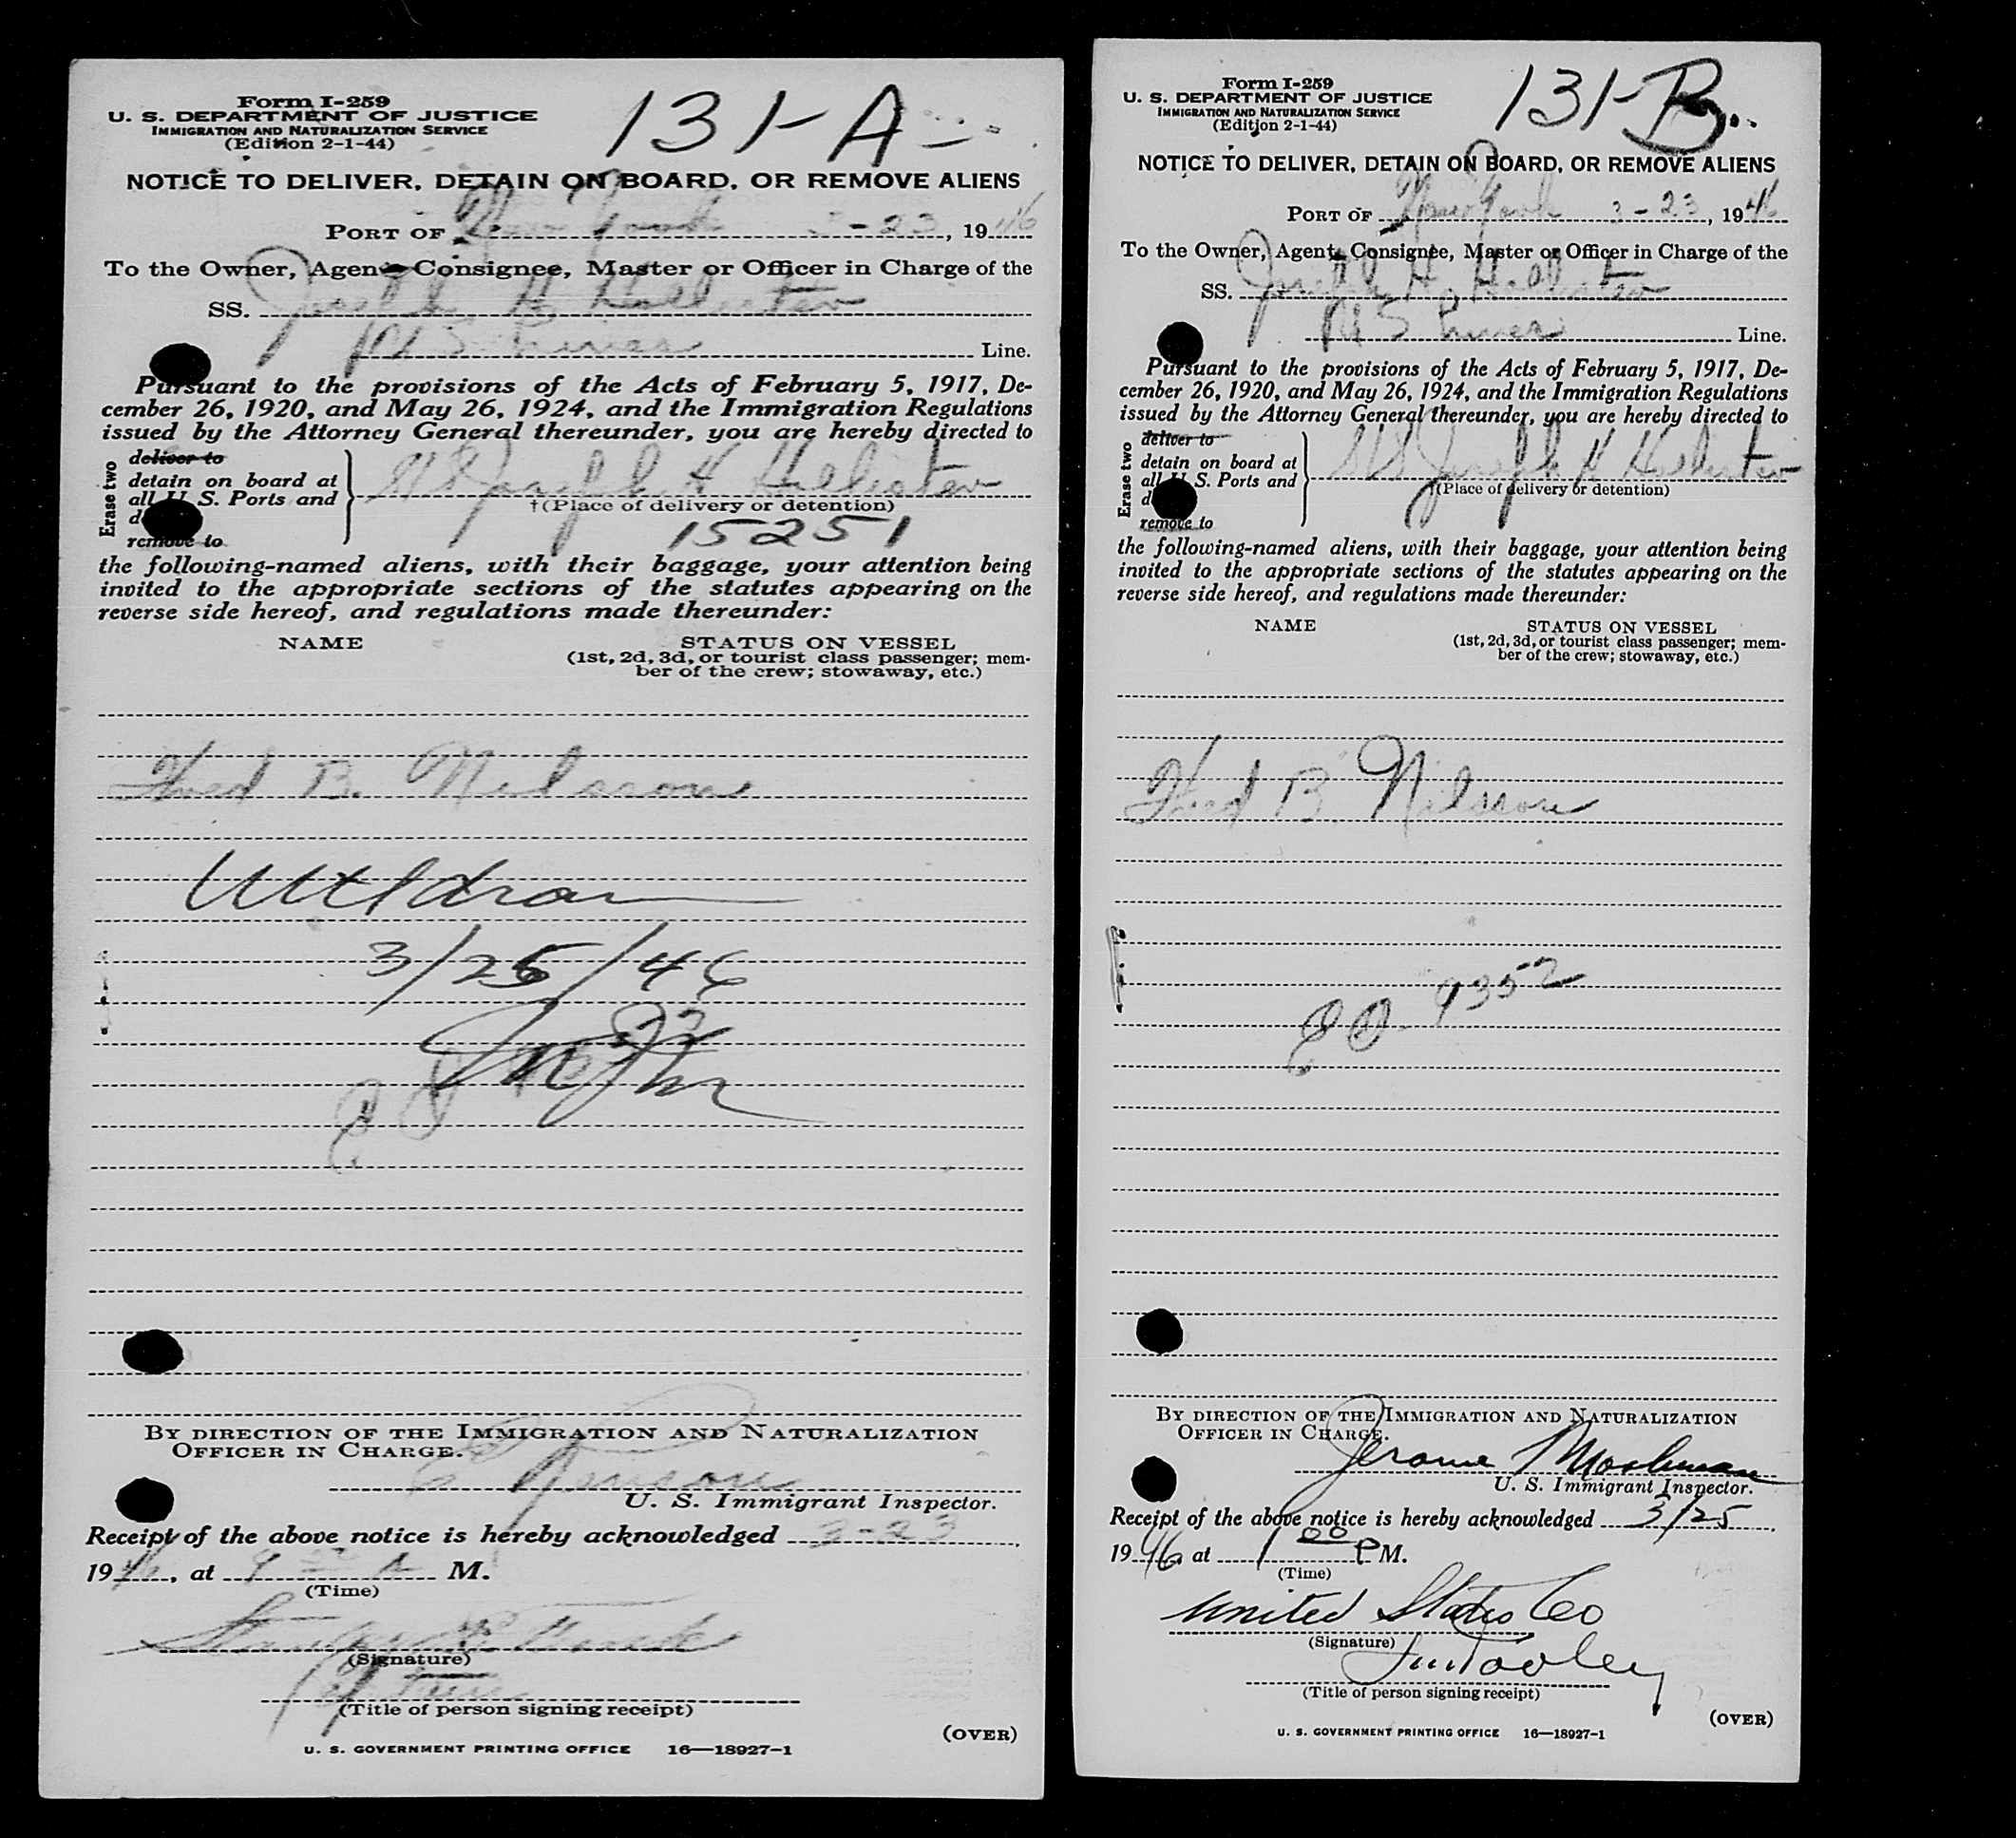 Form I-259
U. S. DEPARTMENT OF JUSTICE
IMMIGRATION AND NATURALIZATION SERVICE
(Edition 2-1-44)
131-A
NOTICE TO DELIVER, DETAIN ON BOARD, OR REMOVE ALIENS
PORT OF New York 3-23, 1946
To the Owner, Agent, Consignee, Master or Officer in Charge of the
SS. Joseph H Hollister
U S Lines Line.
Pursuant to the provisions of the Acts of February 5, 1917, De-
cember 26, 1920, and May 26, 1924, and the Immigration Regulations
issued by the Attorney General thereunder, you are hereby directed to
Erase two
deliver to
detain on board at
all U. S. Ports and
remove to
SS Joseph H Hollister
†(Place of delivery or detention)
15251
the following-named aliens, with their baggage, your attention being
invited to the appropriate sections of the statutes appearing on the
reverse side hereof, and regulations made thereunder:
NAME
STATUS ON VESSEL
(1st, 2d, 3d, or tourist class passenger; mem-
ber of the crew; stowaway, etc.)
Fred B. Nilsson
3/25/46
BY DIRECTION OF THE IMMIGRATION AND NATURALIZATION
OFFICER IN CHARGE.
U. S. Immigrant Inspector.
Receipt of the above notice is hereby acknowledged 3-23
1946, at 9 A M.
(Time)
(Signature)
(Title of person signing receipt)
(OVER)
U. S. GOVERNMENT PRINTING OFFICE 16—18927-1
Form I-259
U. S. DEPARTMENT OF JUSTICE
IMMIGRATION AND NATURALIZATION SERVICE
(Edition 2-1-44)
131-B
NOTICE TO DELIVER, DETAIN ON BOARD, OR REMOVE ALIENS
PORT OF New York 3-23, 1946
To the Owner, Agent, Consignee, Master or Officer in Charge of the
SS. Joseph H Hollister
U S Lines Line.
Pursuant to the provisions of the Acts of February 5, 1917, De-
cember 26, 1920, and May 26, 1924, and the Immigration Regulations
issued by the Attorney General thereunder, you are hereby directed to
Erase two
deliver to
detain on board at
all U. S. Ports and
remove to
SS Joseph H Hollister
†(Place of delivery or detention)
the following-named aliens, with their baggage, your attention being
invited to the appropriate sections of the statutes appearing on the
reverse side hereof, and regulations made thereunder:
NAME
STATUS ON VESSEL
(1st, 2d, 3d, or tourist class passenger; mem-
ber of the crew; stowaway, etc.)
Fred B Nilsson
EO 9352
BY DIRECTION OF THE IMMIGRATION AND NATURALIZATION
OFFICER IN CHARGE.
Jerome
U. S. Immigrant Inspector.
Receipt of the above notice is hereby acknowledged 3/25
1946 at 1 00 P M.
(Time)
United States Co
(Signature)
(Title of person signing receipt)
(OVER)
U. S. GOVERNMENT PRINTING OFFICE 16—18927-1